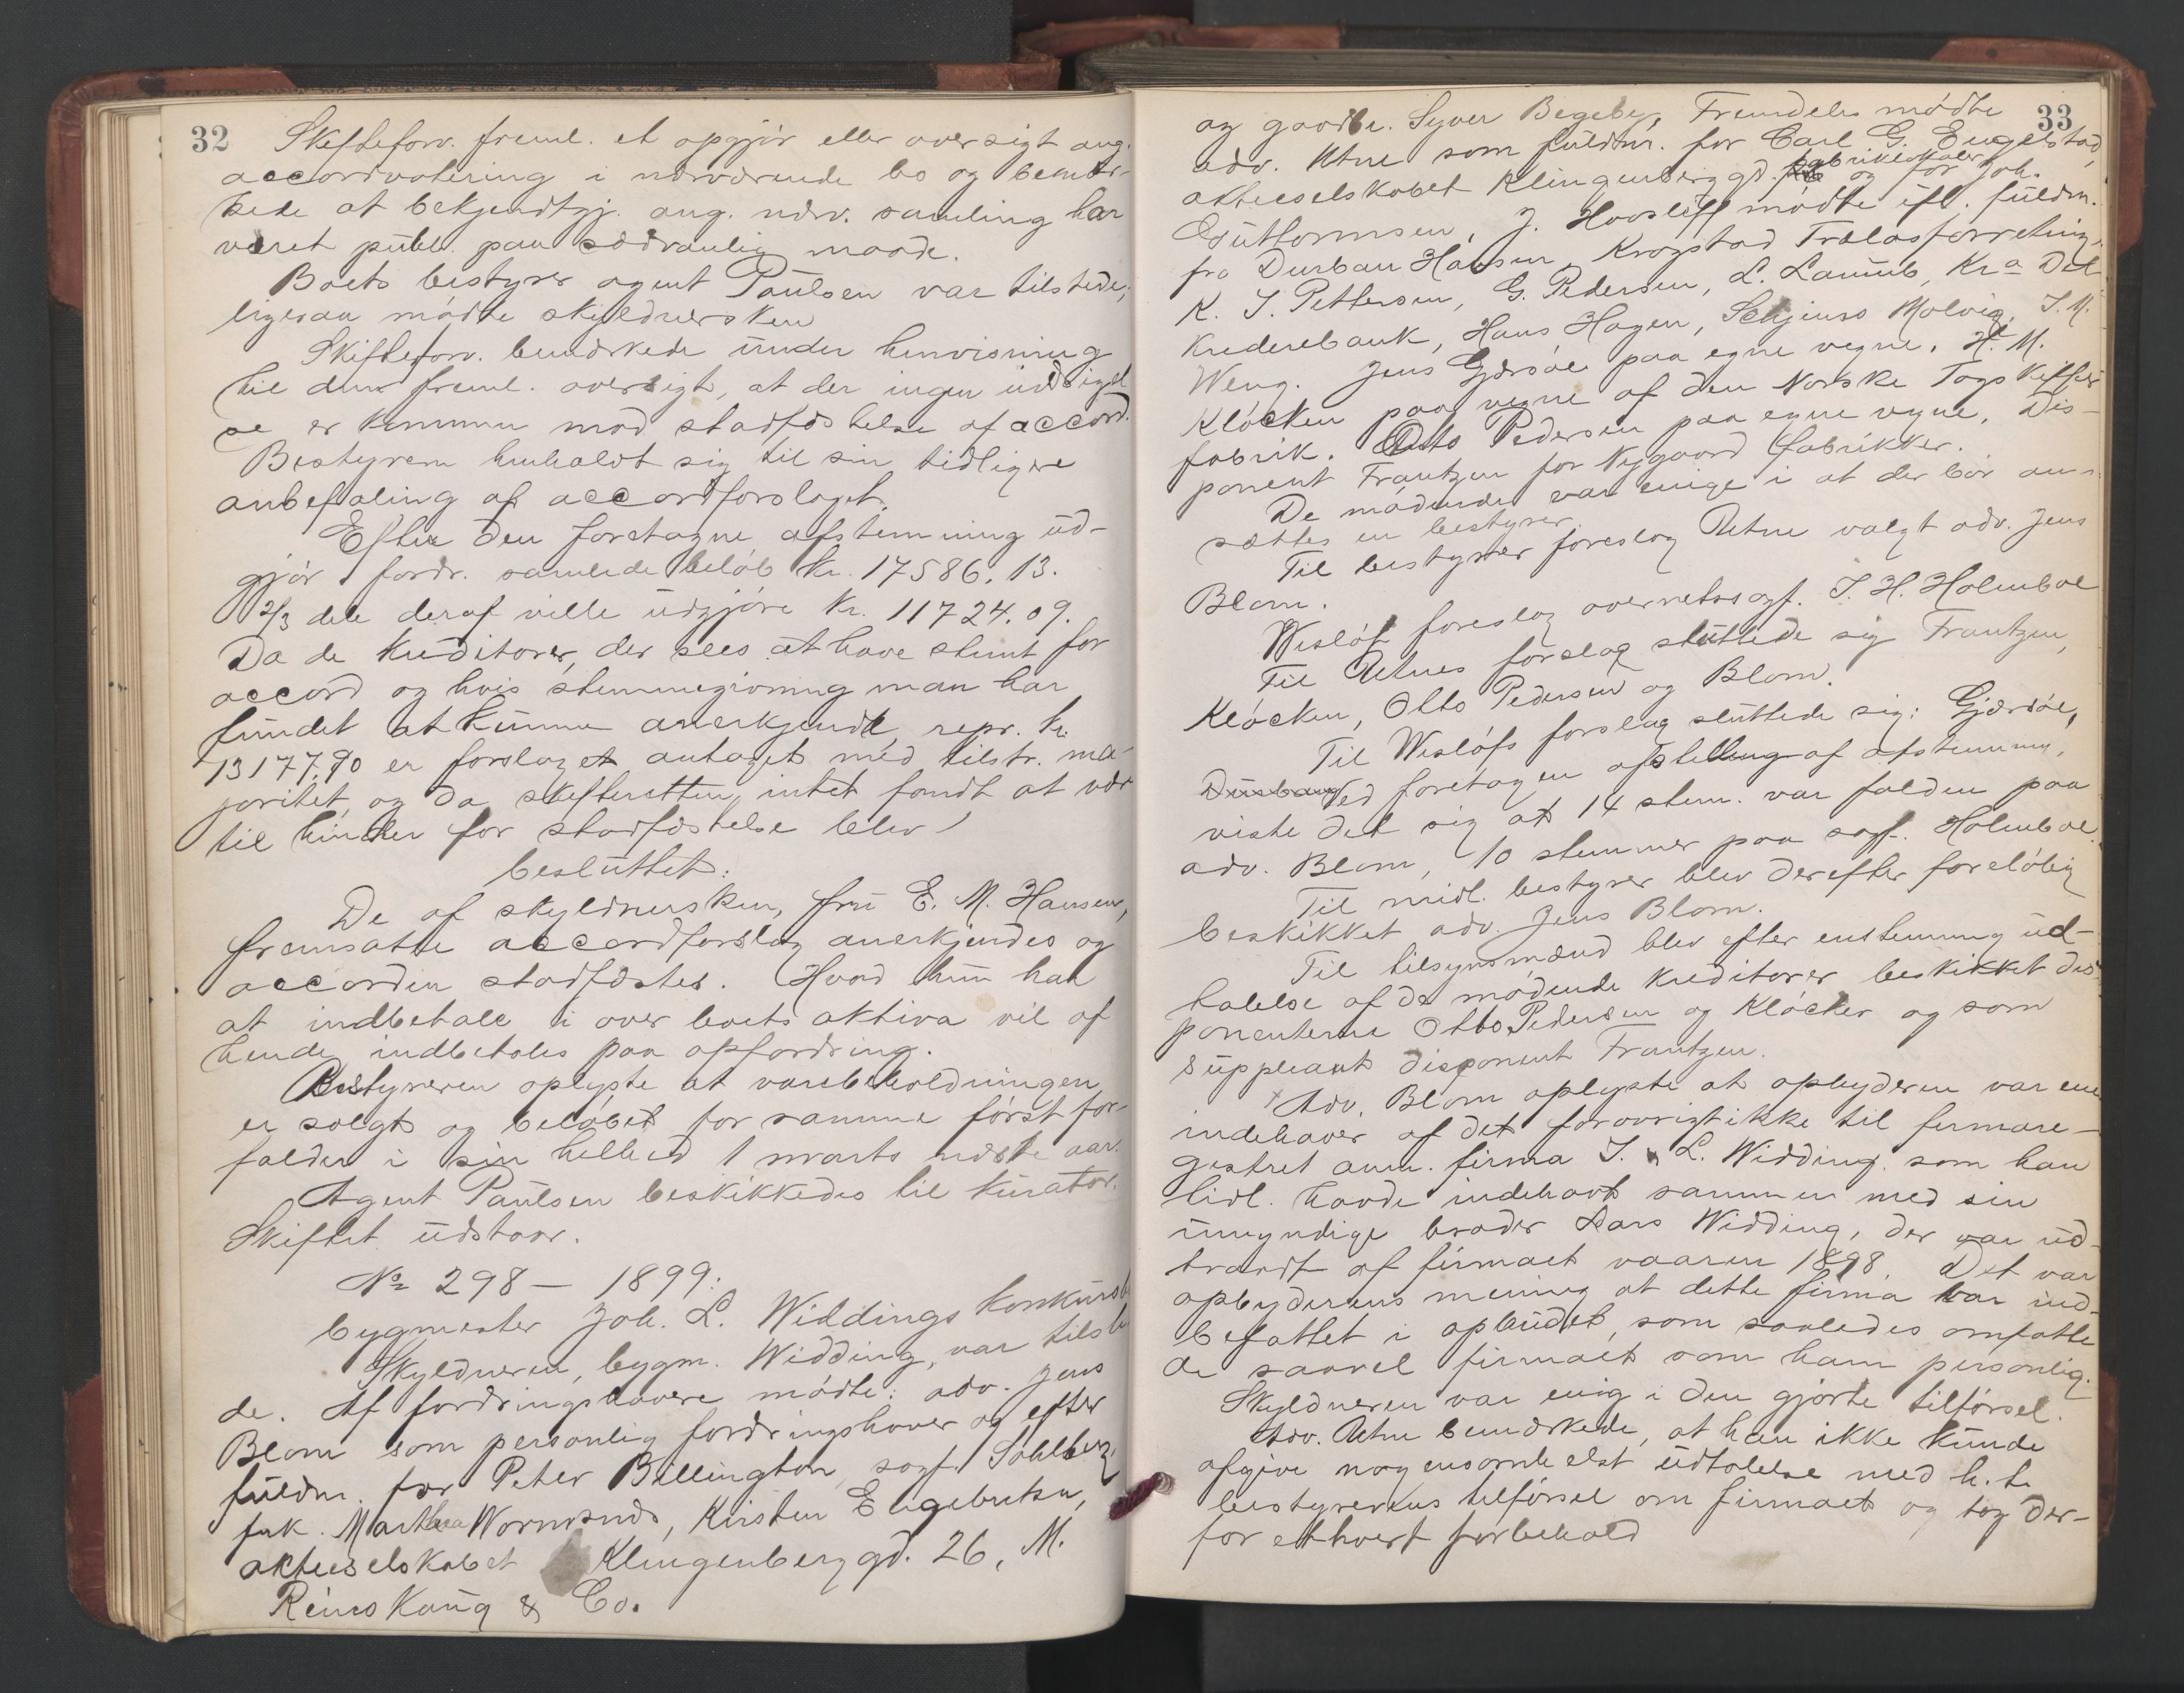 32
Skifteforv. freml. et opgjør eller oversigt ang.
accordvotering i nærværende bo og bemær-
kede at bekjendtgj. ang. nærv. samling har
været publ. paa sædvanlig maade.
Boets bestyrer agent Paulsen var tilstede,
ligesaa mødte skyldnersken
Skifteforv. bemærkede under henvisning
til den freml. oversigt, at der ingen indsigel
se er kommen mod stadfæstelse af accord.
Bestyreren henholdt sig til sin tidligere
anbefaling af accordforslaget.
Efter den foretagne afstemning ud-
gjør fordr. samlede beløb kr. 17586.13.
2/3 dele deraf ville udgjøre kr. 11724.09.
Da de kreditorer, der sees at have stemt for
accord og hvis stemmegivning man har
fundet at kunne anerkjende repr. kr.
13177.90 er forslaget antaget med tilstr. ma-
joritet, og da skifteretten intet fandt at være
til hinder for stadfæstelse blev
besluttet:
De af skyldnersken, fru E. M. Hansen,
fremsatte accordforslag anerkjendes og
accorden stadfæstes. Hvad hun har
at indbetale i over boets aktiva vil af
hende indbetales paa opfordring.
Bestyreren oplyste at varebeholdningen
er solgt og beløbet for samme først for-
falder i sin helhed 1 marts næste aar.
Agent Paulsen beskikkedes til kurator.
Skiftet udstaar.
No 298 — 1899:
bygmester Joh. L. Widdings konkursbo
Skyldneren, bygm. Widding, var tilste
de. Af fordringshavere mødte: adv. Jens
Blom som personlig fordringshaver og efter
fuldm. for Peter Billington, sagf. Sahlberg,
frk. Marthea Wormsnds, Kirsten Engebretsen,
aktieselskabet Klingenberggd. 26, M.
Reimo Kaug & Co.
33
og gaardbr. Syver Begeby, Fremdeles mødte
adv. Utne som fuldm. for Carl G. Engelstad,
fabrikslokaler
aktieselskabet Klingenberggd. og for Joh.
Guttormsen, J. Hovsliff mødte ifl. fuldm.
fra Durban Hansen, Krogstad Trælasforretning,
K. J. Pettersen, G. Pedersen, L. Lamm, Kra Det
Krederebank, Hans Hagen, Schjerns Molvig, J. M.
Weng. Jens Gjersøe paa egne vegne. H. M.
Kløcken paa vegne af den Norske Tagskiffer
fabrik. Otto Pedersen paa egne vegne. Dis-
ponent Frantzen for Nygaard fabrikker.
De mødende var enige i at der bør an-
sættes en bestyrer.
Til bestyrer foreslog Utne valgt adv. Jens
Blom.
Wisløf foreslog overretssagf. J. H. Holmboe
Til Utnes forslag sluttede sig Frantzen,
Kløcken, Otto Pedersen og Blom.
Til Wisløfs forslag sluttede sig: Gjersøe,
Ved foretagen afstemning
viste det sig at 14 stem. var falden paa
adv. Blom, 10 stemmer paa sagf. Holmboe.
Til midl. bestyrer blev derefter foreløbig
beskikket adv. Jens Blom.
Til tilsynsmænd blev efter enstemmig ud-
talelse af de mødende kreditorer beskikket dis-
ponenterne Otto Pedersen og Kløcker og som
suppleant disponent Frantzen.
Adv. Blom oplyste at opbyderen var ene
indehaver af det forøvrigt ikke til firmare-
gistret anm. firma J. & L. Widding som han
tidl. havde indehavt sammen med sin
umyndige broder Lars Widding, der var ud-
traadt af firmaet vaaren 1898. Det var
opbyderens mening at dette firma var ind-
befattet i opbudet, som saaledes omfatte
de saavel firmaet som ham personlig.
Skyldneren var enig i den gjorte tilførsel.
Adv. Utne bemærkede, at han ikke kunde
afgive nogensomhelst udtalelse med h. t.
bestyrerens tilførsel om firmaet og tog der-
for ethvert forbehold